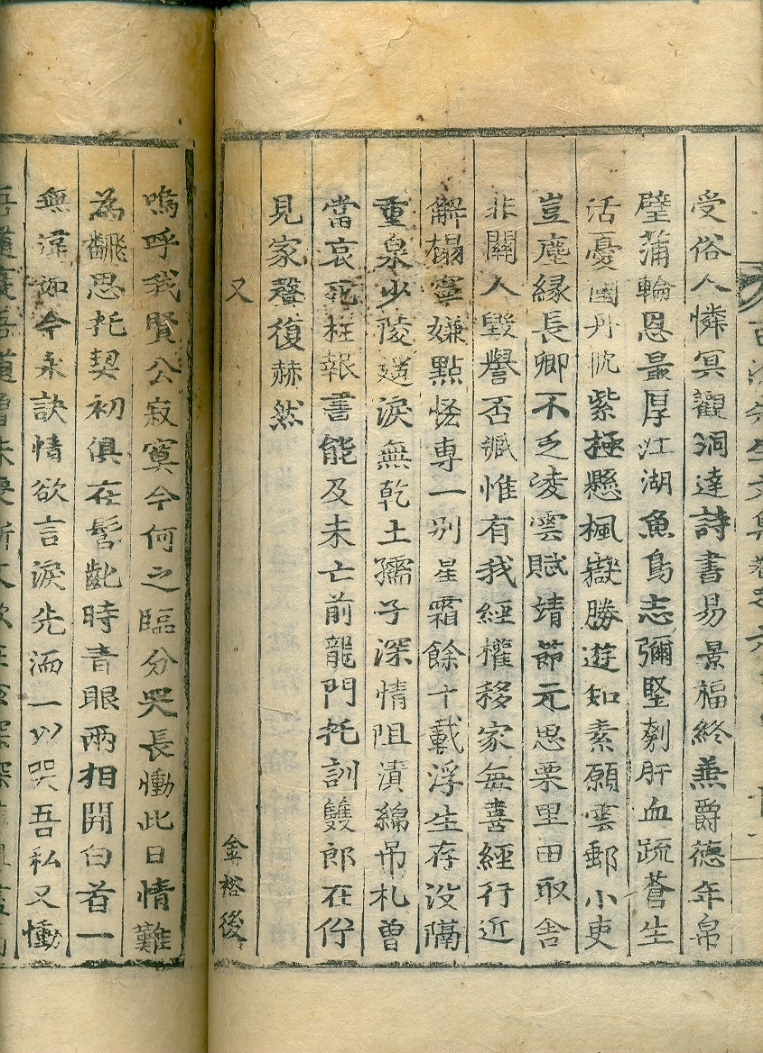 受俗人憐冥觀洞達詩書易景福終兼爵德年帛
璧蒲輪恩最厚江湖魚鳥志彌堅刳肝血疏蒼生
活憂國丹忱紫極懸楓嶽勝遊知素願雲郵小吏
豈塵縁長卿不乏凌雲賦靖節元思栗里田取舍
非關人毀譽否臧惟有我經權移家每喜經行近
解榻寧嫌點怪專一別星霜餘十載浮生存没隔
重泉少陵遺淚無乾土孺子深情阻漬綿吊札曾
當哀死枉報書能及未亡前龍門托訓雙郎在佇
見家聲復赫然
又 金榕後
嗚呼我賢公寂寞今何之臨分哭長慟此日情難
為飜思托契初俱在髫齔時青眼兩相開白首一
無違如今永訣情欲言淚先洏一以哭吾私又慟